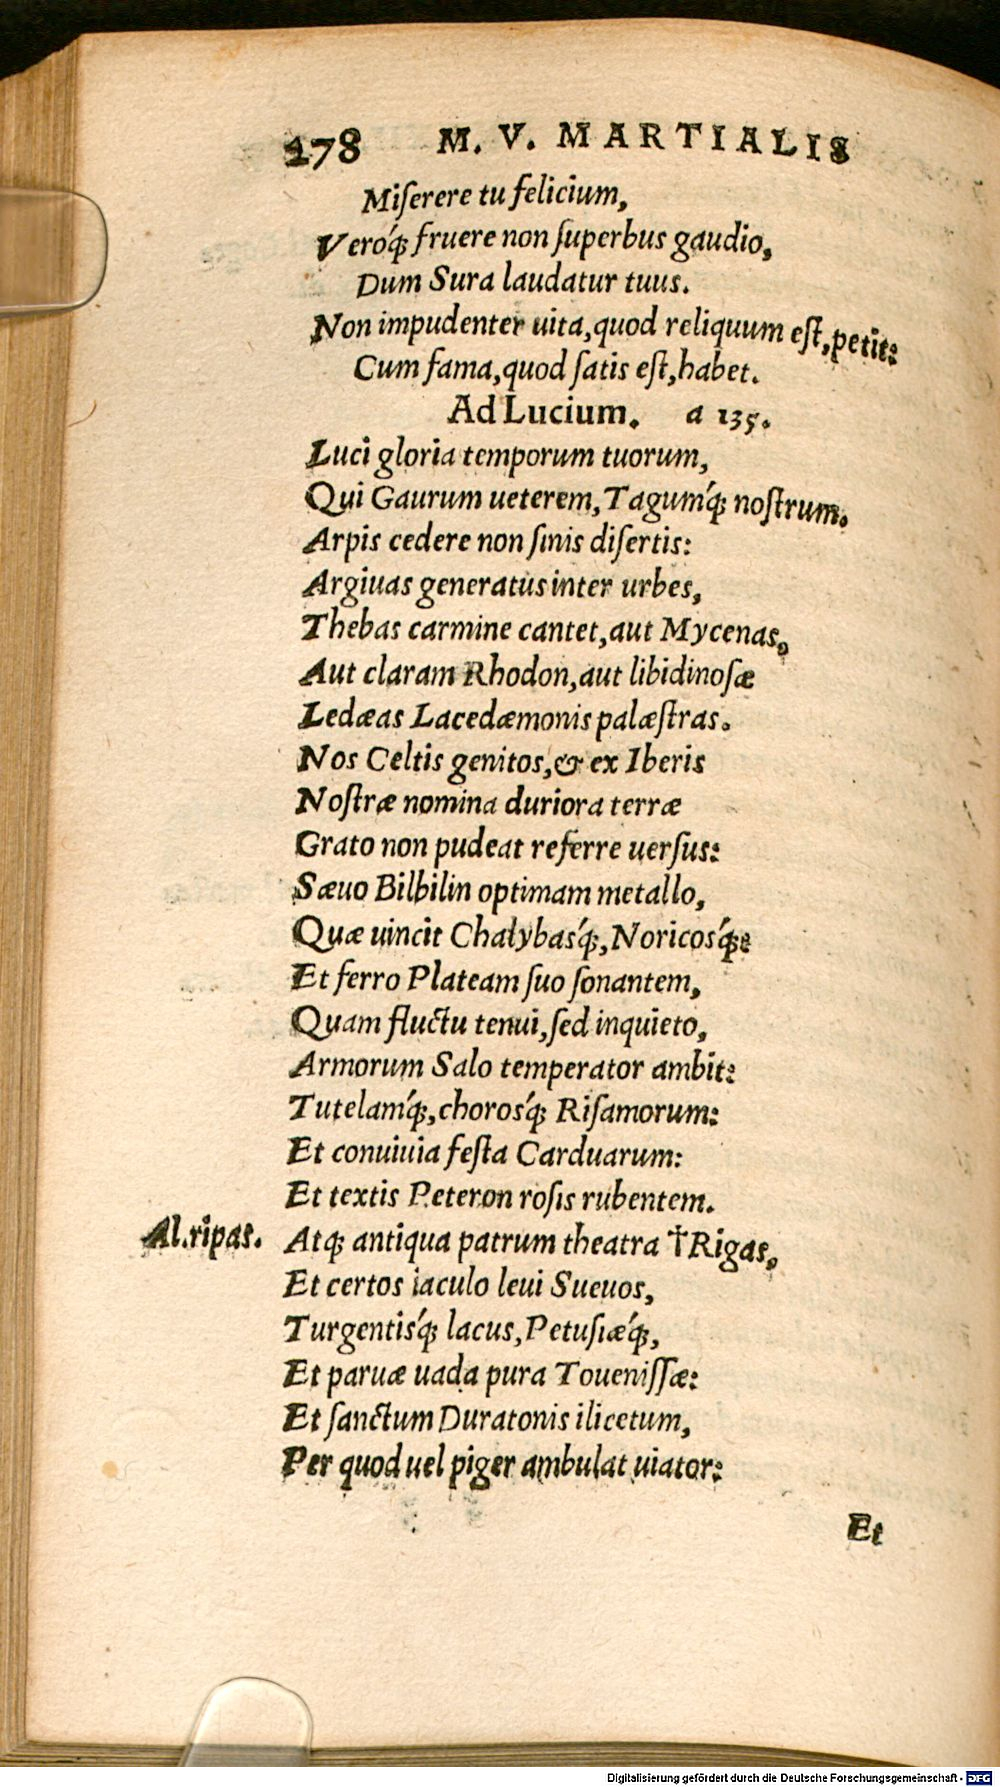 278 M. V. MARTIALIS
Miſerere tu felicium,
Veroq́; fruere non ſuperbus gaudio,
Dum Sura laudatur tuus.
Non impudenter uita, quod reliquum eſt, petit:
Cum fama, quod ſatis eſt, habet.
Ad Lucium. a 135.
Luci gloria temporum tuorum,
Qui Gaurum ueterem, Tagumq́; noſtrum.
Arpis cedere non ſinis diſertis:
Argiuas generatus inter urbes,
Thebas carmine cantet, aut Mycenas,
Aut claram Rhodon, aut libidinoſæ
Ledæas Lacedæmonis palæſtras.
Nos Celtis genitos, & ex Iberis
Noſtræ nomina duriora terræ
Grato non pudeat referre uerſus:
Sæuo Bilbilin optimam metallo,
Quæ uincit Chalybasq́;, Noricosq́;:
Et ferro Plateam ſuo ſonantem,
Quam fluctu tenui, ſed inquieto,
Armorum Salo temperator ambit:
Tutelamq́;, chorosq́; Riſamorum:
Et conuiuia feſta Carduarum:
Et textis Peteron roſis rubentem.
Al. ripas. Atq; antiqua patrum theatra †Rigas,
Et certos iaculo leui Sueuos,
Turgentisq́; lacus, Petuſiæq́;,
Et paruæ uada pura Toueniſſæ:
Et ſanctum Duratonis ilicetum,
Per quod uel piger ambulat uiator:
Et
Digitalisierung gefördert durch die Deutsche Forschungsgemeinschaft - DFG